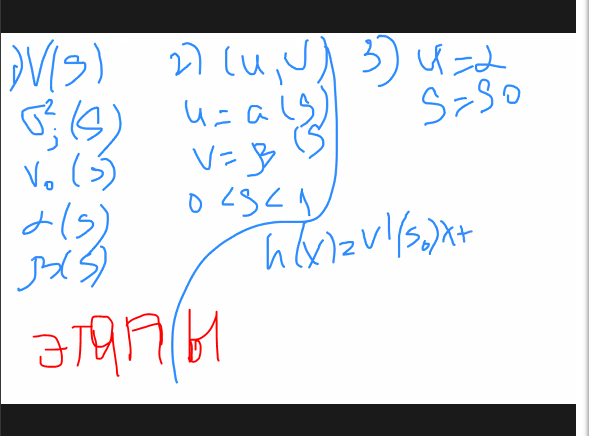 1) V(s)
σ²ⱼ(s)
v₀(s)
α(s)
β(s)
2) (u,v)
u = a(s)
v = β(s
0 < s < 1
3) u = α
s = s0
h(x) = v'(s₀)x+